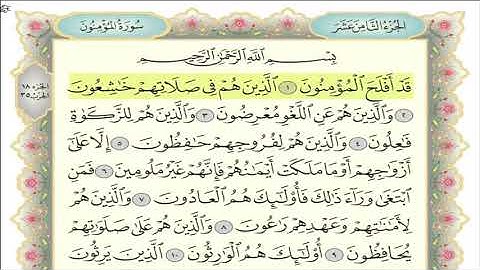 الجزء الثامن عشر
سورة المؤمنون
بِسْمِ ٱللَّهِ ٱلرَّحْمَٰنِ ٱلرَّحِيمِ
الجزء ١٨
الحزب ٣٥
قَدْ أَفْلَحَ ٱلْمُؤْمِنُونَ ١ ٱلَّذِينَ هُمْ فِى صَلَاتِهِمْ خَٰشِعُونَ
٢ وَٱلَّذِينَ هُمْ عَنِ ٱللَّغْوِ مُعْرِضُونَ ٣ وَٱلَّذِينَ هُمْ لِلزَّكَوٰةِ
فَٰعِلُونَ ٤ وَٱلَّذِينَ هُمْ لِفُرُوجِهِمْ حَٰفِظُونَ ٥ إِلَّا عَلَىٰٓ
أَزْوَٰجِهِمْ أَوْ مَا مَلَكَتْ أَيْمَٰنُهُمْ فَإِنَّهُمْ غَيْرُ مَلُومِينَ ٦ فَمَنِ
ٱبْتَغَىٰ وَرَآءَ ذَٰلِكَ فَأُو۟لَٰٓئِكَ هُمُ ٱلْعَادُونَ ٧ وَٱلَّذِينَ هُمْ
لِأَمَٰنَٰتِهِمْ وَعَهْدِهِمْ رَٰعُونَ ٨ وَٱلَّذِينَ هُمْ عَلَىٰ صَلَوَٰتِهِمْ
يُحَافِظُونَ ٩ أُو۟لَٰٓئِكَ هُمُ ٱلْوَٰرِثُونَ ١٠ ٱلَّذِينَ يَرِثُونَ